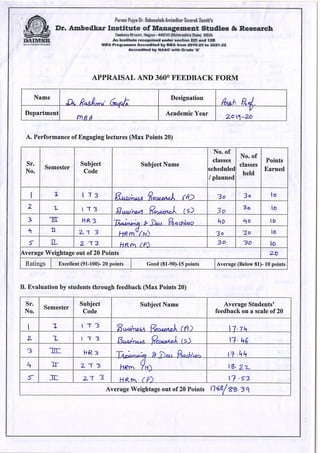 Param Pujya Dr. Babasaheb Ambedkar Smarak Samiti's
Dr. Ambedkar Institute of Management Studies & Research
Deeksha Bhoomi, Nagpur - 440010 (Maharashtra State) INDIA
An Institute recognised under section 2(f) and 12B
MBA Programme Accredited by NBA from 2019-20 to 2021-22
Accredited by NAAC with Grade 'A'
DAIMSR
APPRAISAL AND 360° FEEDBACK FORM
Name Dr Rashmi Gupta Designation Asst Prof.
Department MBA Academic Year 2019-20
A. Performance of Engaging lectures (Max Points 20)
Sr. No. Semester Subject Code Subject Name No. of classes scheduled / planned No. of classes held Points Earned
1 I 1T3 Business Research (A) 30 30 10
2 I 1T3 Business Research (S) 30 30 10
3 III HR3 Training & Dev Practices 40 40 10
4 II 2T3 HRM (H) 30 30 10
5 II 2T3 HRM (F) 30 30 10
Average Weightage out of 20 20
Ratings Excellent (91-100)- 20 points Good (81-90)-15 points Average (Below 81)- 10 points
B. Evaluation by students through feedback (Max Points 20)
Sr. No. Semester Subject Code Subject Name Average Students' feedback on a scale of 20
1 I 1T3 Business Research (A) 17.74
2 I 1T3 Business Research (S) 17.46
3 III HR3 Training & Dev Practices 17.44
4 II 2T3 HRM (H) 18.22
5 II 2T3 HRM (F) 17.53
Average Weightage out of 20 Points 17.68/88.39